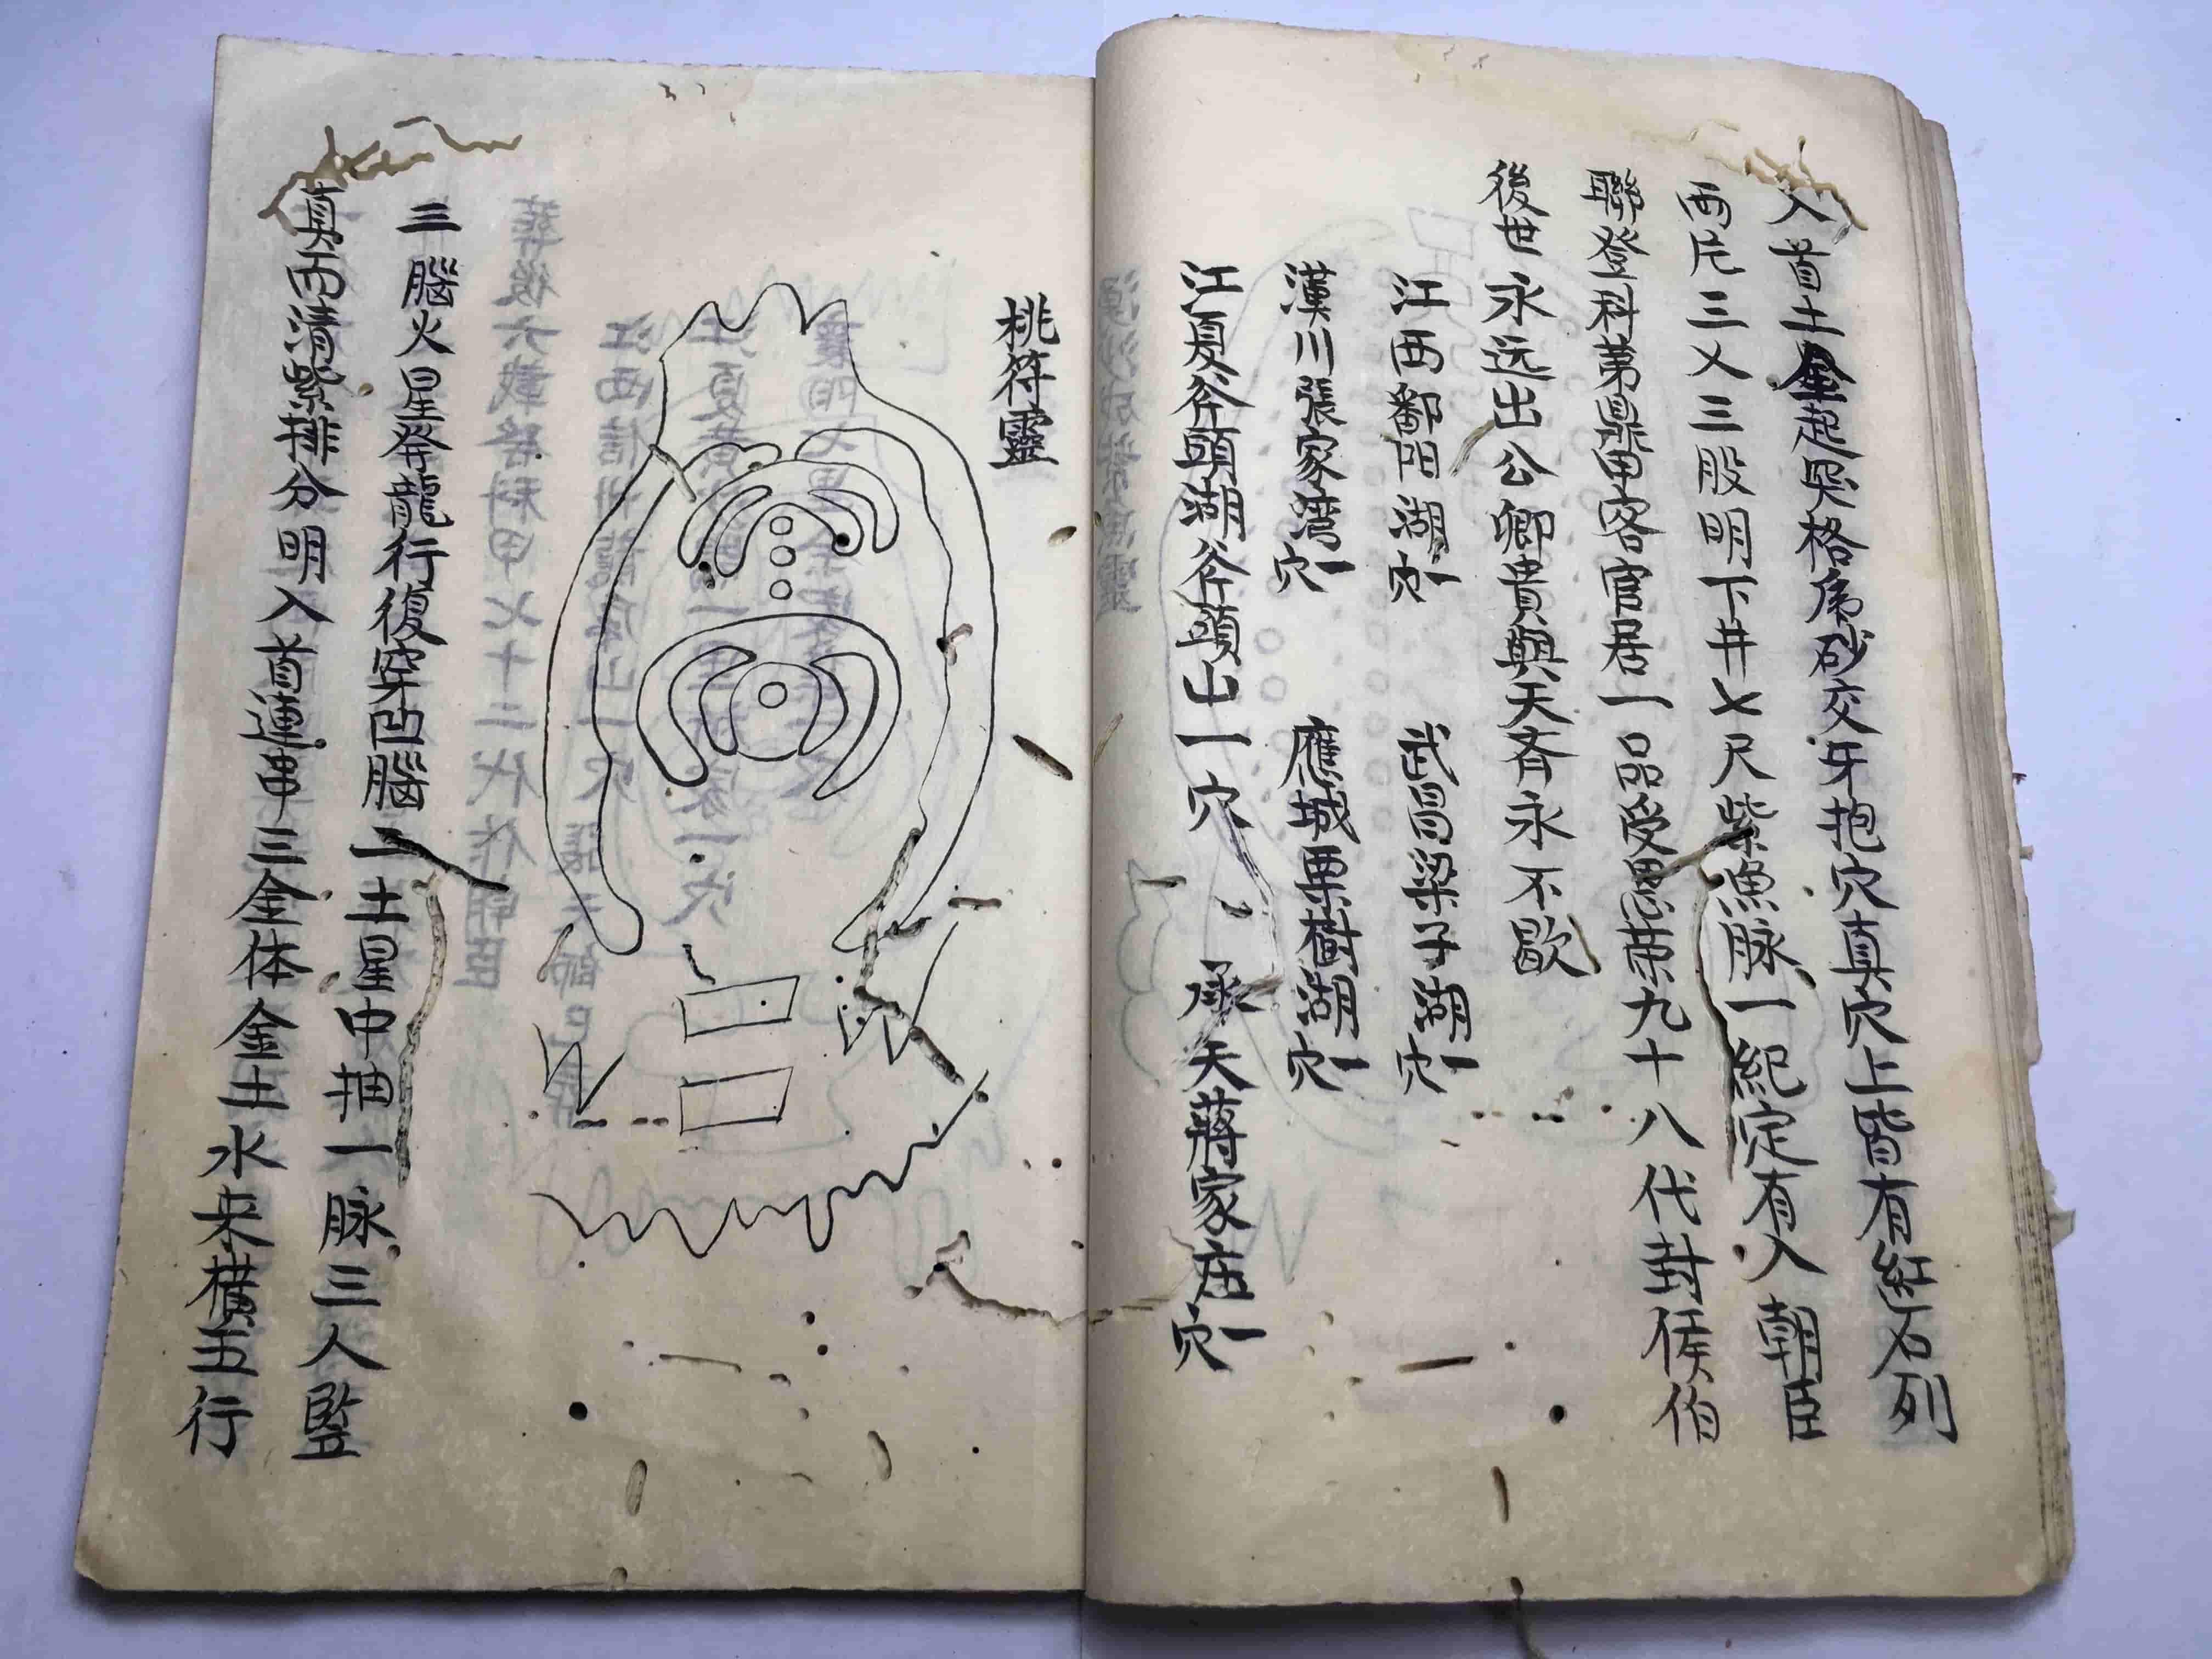 入首土金起罡格為砂交牙抱穴真穴上皆有紅石列
兩片三乂三股明下井乂尺紫漁脉一紀定有入朝臣
聯登科第鼎甲客官居一品受恩榮九十八代封侯伯
後世永远出公卿貴與天齊永不歇
江西鄱阳湖一穴 武昌梁子湖一穴
漢川張家湾一穴 應城栗樹湖一穴
江夏斧頭湖斧頭山一穴 承天蔣家庄一穴
桃符靈
三腦火星發龍行復穿凹腦二土星中抽一脉三人監
真而清繁排分明入首連串三金体金土水来横五行